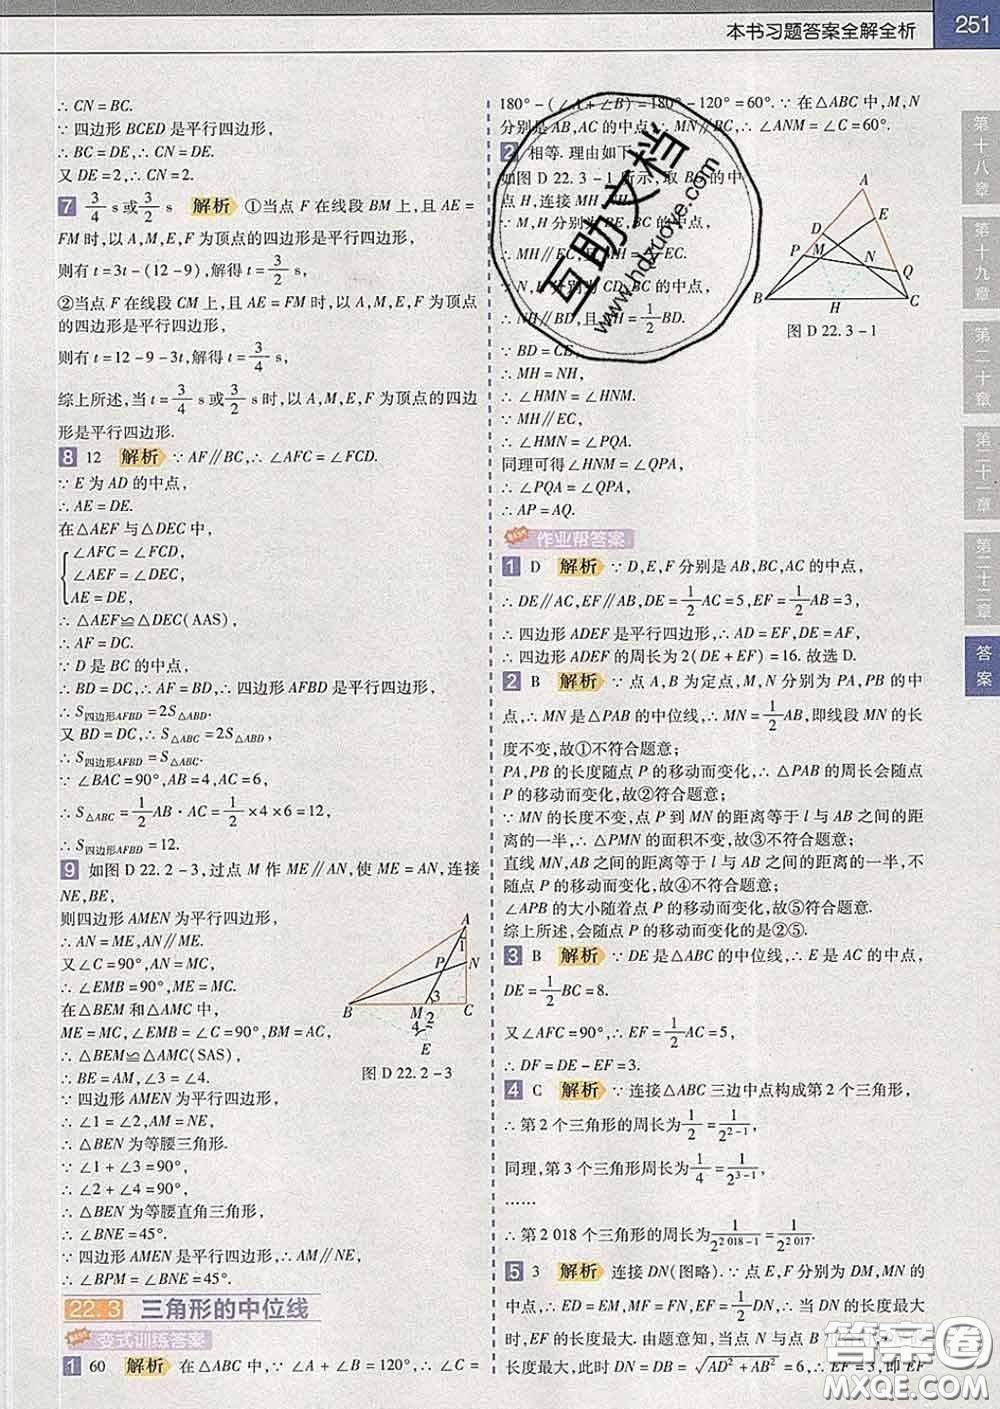 本书习题答案全解全析 251
∴ CN = BC.
∵ 四边形 BCED 是平行四边形,
∴ BC = DE, ∴ CN = DE.
又 DE = 2, ∴ CN = 2.
7 3/4 s 或 3/2 s 解析 ①当点 F 在线段 BM 上,且 AE =
FM 时,以 A,M,E,F 为顶点的四边形是平行四边形,
则有 t = 3t - (12 - 9),解得 t = 3/2 s,
②当点 F 在线段 CM 上,且 AE = FM 时,以 A,M,E,F 为顶点
的四边形是平行四边形,
则有 t = 12 - 9 - 3t,解得 t = 3/4 s,
综上所述,当 t = 3/4 s 或 3/2 s 时,以 A,M,E,F 为顶点的四边
形是平行四边形.
8 12 解析 ∵ AF∥BC, ∴ ∠AFC = ∠FCD.
∵ E 为 AD 的中点,
∴ AE = DE.
在△AEF 与△DEC 中,
∠AFC = ∠FCD,
∠AEF = ∠DEC,
AE = DE,
∴ △AEF≌△DEC(AAS)
∴ AF = DC.
∵ D 是 BC 的中点,
∴ BD = DC, ∴ AF = BD, ∴ 四边形 AFBD 是平行四边形,
∴ S四边形AFBD = 2S△ABD.
又 BD = DC, ∴ S△ABC = 2S△ABD,
∴ S四边形AFBD = S△ABC.
∵ ∠BAC = 90°, AB = 4, AC = 6,
∴ S△ABC = 1/2 AB · AC = 1/2 × 4 × 6 = 12,
∴ S四边形AFBD = 12.
9 如图 D 22. 2 - 3,过点 M 作 ME∥AN,使 ME = AN,连接
NE,BE,
则四边形 AMEN 为平行四边形,
∴ AN = ME, AN∥ME.
又∠C = 90°, AN = MC,
∴ ∠EMB = 90°, ME = MC.
在△BEM 和△AMC 中,
ME = MC, ∠EMB = ∠C = 90°, BM = AC,
∴ △BEM≌△AMC(SAS),
∴ BE = AM, ∠3 = ∠4.
∵ 四边形 AMEN 为平行四边形,
∴ ∠1 = ∠2, AM = NE,
∴ △BEN 为等腰三角形.
∵ ∠1 + ∠3 = 90°,
∴ ∠2 + ∠4 = 90°,
∴ △BEN 为等腰直角三角形,
∴ ∠BNE = 45°.
∵ 四边形 AMEN 是平行四边形, ∴ AM∥NE,
∴ ∠BPM = ∠BNE = 45°.
A
1
P
N
3
B
M
2
C
4
E
图 D 22. 2 - 3
22. 3 三角形的中位线
变式训练答案
1 60 解析 在△ABC 中, ∵ ∠A + ∠B = 120°, ∴ ∠C =
180° - (∠A + ∠B) = 180° - 120° = 60°. ∵ 在△ABC 中,M,N
分别是 AB,AC 的中点, ∴ MN∥BC, ∴ ∠ANM = ∠C = 60°.
2 相等. 理由如下
如图 D 22. 3 - 1 所示,取 BC 的中
点 H,连接 MH,NH.
∵ M,H 分别为 BE,BC 的中点,
∴ MH∥EC, EC.
∵ N,H 分别为 CD,BC 的中点,
∴ NH∥BD,且 NH = 1/2 BD.
∵ BD = CE,
∴ MH = NH,
∴ ∠HMN = ∠HNM.
∵ MH∥EC,
∴ ∠HMN = ∠PQA.
同理可得∠HNM = ∠QPA,
∴ ∠PQA = ∠QPA,
∴ AP = AQ.
A
E
D
P
M
N
Q
B
H
C
图 D 22. 3 - 1
作业帮答案
1 D 解析 ∵ D,E,F 分别是 AB,BC,AC 的中点,
∴ DE∥AC, EF∥AB, DE = 1/2 AC = 5, EF = 1/2 AB = 3,
∴ 四边形 ADEF 是平行四边形, ∴ AD = EF, DE = AF,
∴ 四边形 ADEF 的周长为 2(DE + EF) = 16. 故选 D.
2 B 解析 ∵ 点 A,B 为定点,M,N 分别为 PA,PB 的中
点, ∴ MN 是△PAB 的中位线, ∴ MN = 1/2 AB,即线段 MN 的长
度不变,故①不符合题意;
PA,PB 的长度随点 P 的移动而变化, ∴ △PAB 的周长会随点
P 的移动而变化,故②符合题意;
∵ MN 的长度不变,点 P 到 MN 的距离等于 l 与 AB 之间的距
离的一半, ∴ △PMN 的面积不变,故③不符合题意;
直线 MN,AB 之间的距离等于 l 与 AB 之间的距离的一半,不
随点 P 的移动而变化,故④不符合题意;
∠APB 的大小随着点 P 的移动而变化,故⑤符合题意.
综上所述,会随点 P 的移动而变化的是②⑤.
3 B 解析 ∵ DE 是△ABC 的中位线, ∴ E 是 AC 的中点,
DE = 1/2 BC = 8.
又∠AFC = 90°, ∴ EF = 1/2 AC = 5,
∴ DF = DE - EF = 3.
4 C 解析 ∵ 连接△ABC 三边中点构成第 2 个三角形,
∴ 第 2 个三角形的周长为 1/2 = 1/2^(2-1),
同理,第 3 个三角形周长为 1/4 = 1/2^(3-1),
……
∴ 第 2 018 个三角形的周长为 1/2^(2 018-1) = 1/2^(2 017).
5 3 解析 连接 DN(图略). ∵ 点 E,F 分别为 DM,MN 的
中点, ∴ ED = EM, MF = FN, ∴ EF = 1/2 DN, ∴ DN 的长度最大
时,EF 的长度最大. 由题意知,当点 N 与点 B 重合时 DN 的
长度最大,此时 DN = DB = √(AD² + AB²) = 6, ∴ EF = 3,即 EF
第十八章
第十九章
第二十章
第二十一章
第二十二章
答案
互助文档
www.hdzuoye.com
答案卷
MXQE.COM